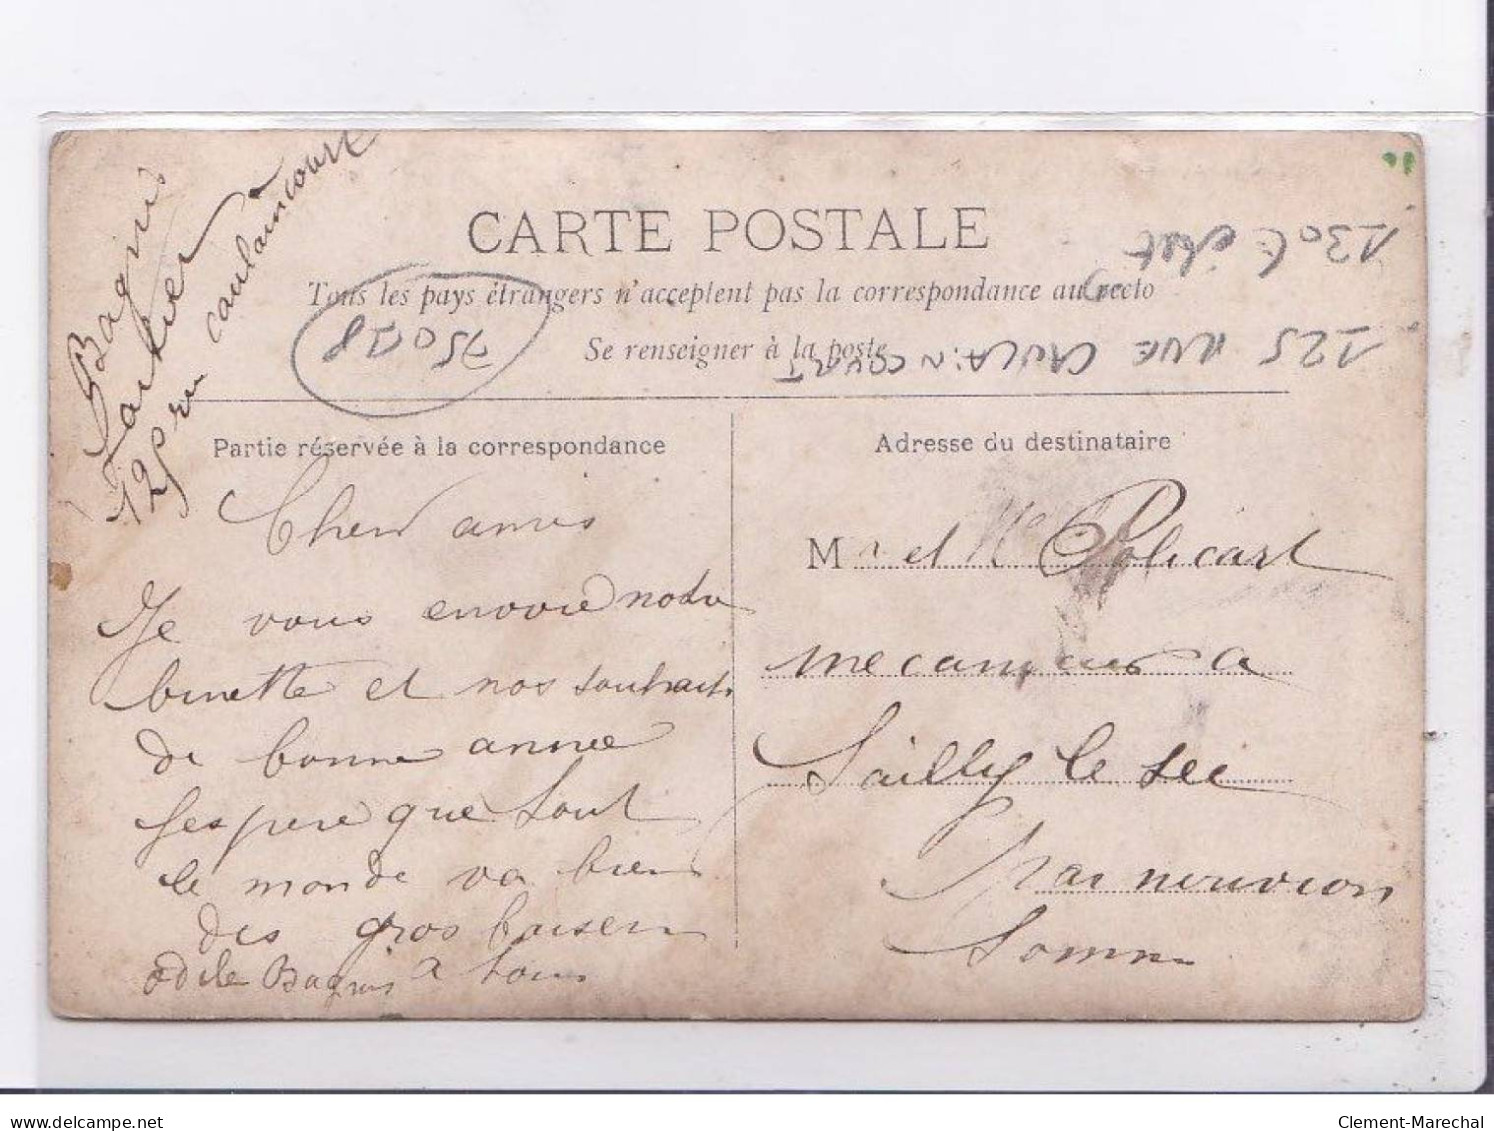 Bagnis
125 rue caulaincourt
CARTE POSTALE
Tous les pays étrangers n'acceptent pas la correspondance au recto
Se renseigner à la poste
130
125 RUE CAULAINCOURT
75018
Partie réservée à la correspondance
Cher amis
Je vous envoie notre
binette et nos souhaits
de bonne annee
Jespere que tout
le monde va bien
des gros baiser
odile Bagnis a tous
Adresse du destinataire
Mr et Me Policart
mecanicien a
Sailly le sec
par nouvion
Somme
delcampe.net
Clement-Marechal